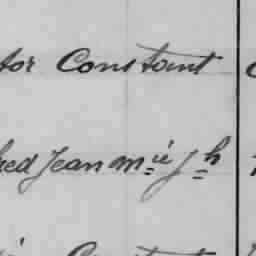 tor Constant
red Jean m.ie Jh